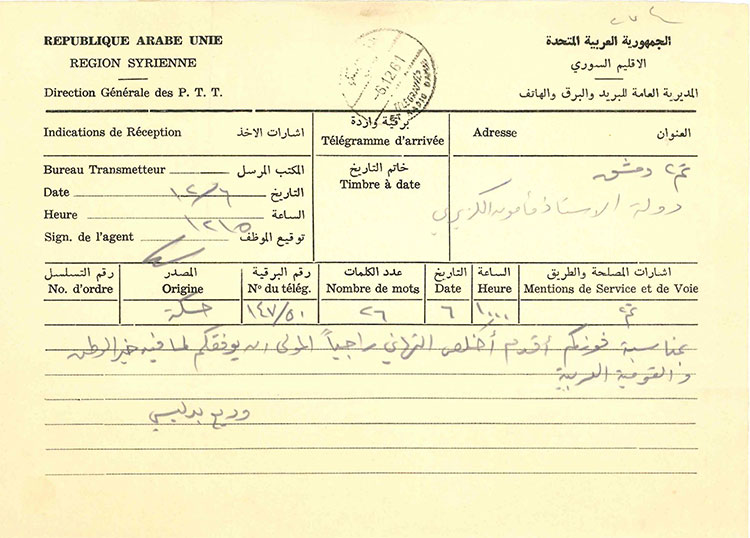 REPUBLIQUE ARABE UNIE
REGION SYRIENNE
Direction Générale des P. T. T.
الجمهورية العربية المتحدة
الاقليم السوري
المديرية العامة للبريد والبرق والهاتف
6.12.61
Indications de Réception اشارات الاخذ
برقية واردة
Télégramme d'arrivée
Adresse العنوان
Bureau Transmetteur المكتب المرسل
Date ١٢/٦ التاريخ
Heure ١٢١٥ الساعة
Sign. de l'agent توقيع الموظف
خاتم التاريخ
Timbre à date
دمشق
دولة الاستاذ مأمون الكزبري
رقم التسلسل المصدر رقم البرقية عدد الكلمات التاريخ الساعة اشارات المصلحة والطريق
No. d'ordre Origine N° du télég. Nombre de mots Date Heure Mentions de Service et de Voie
حسكة ١٤٧/٥٠ ٢٦ ٦ ١٠٠٠
بمناسبة فوزكم أقدم أخلص التهاني راجياً المولى ان يوفقكم لما فيه خير الوطن
والقومية العربية
وديع بدليسي